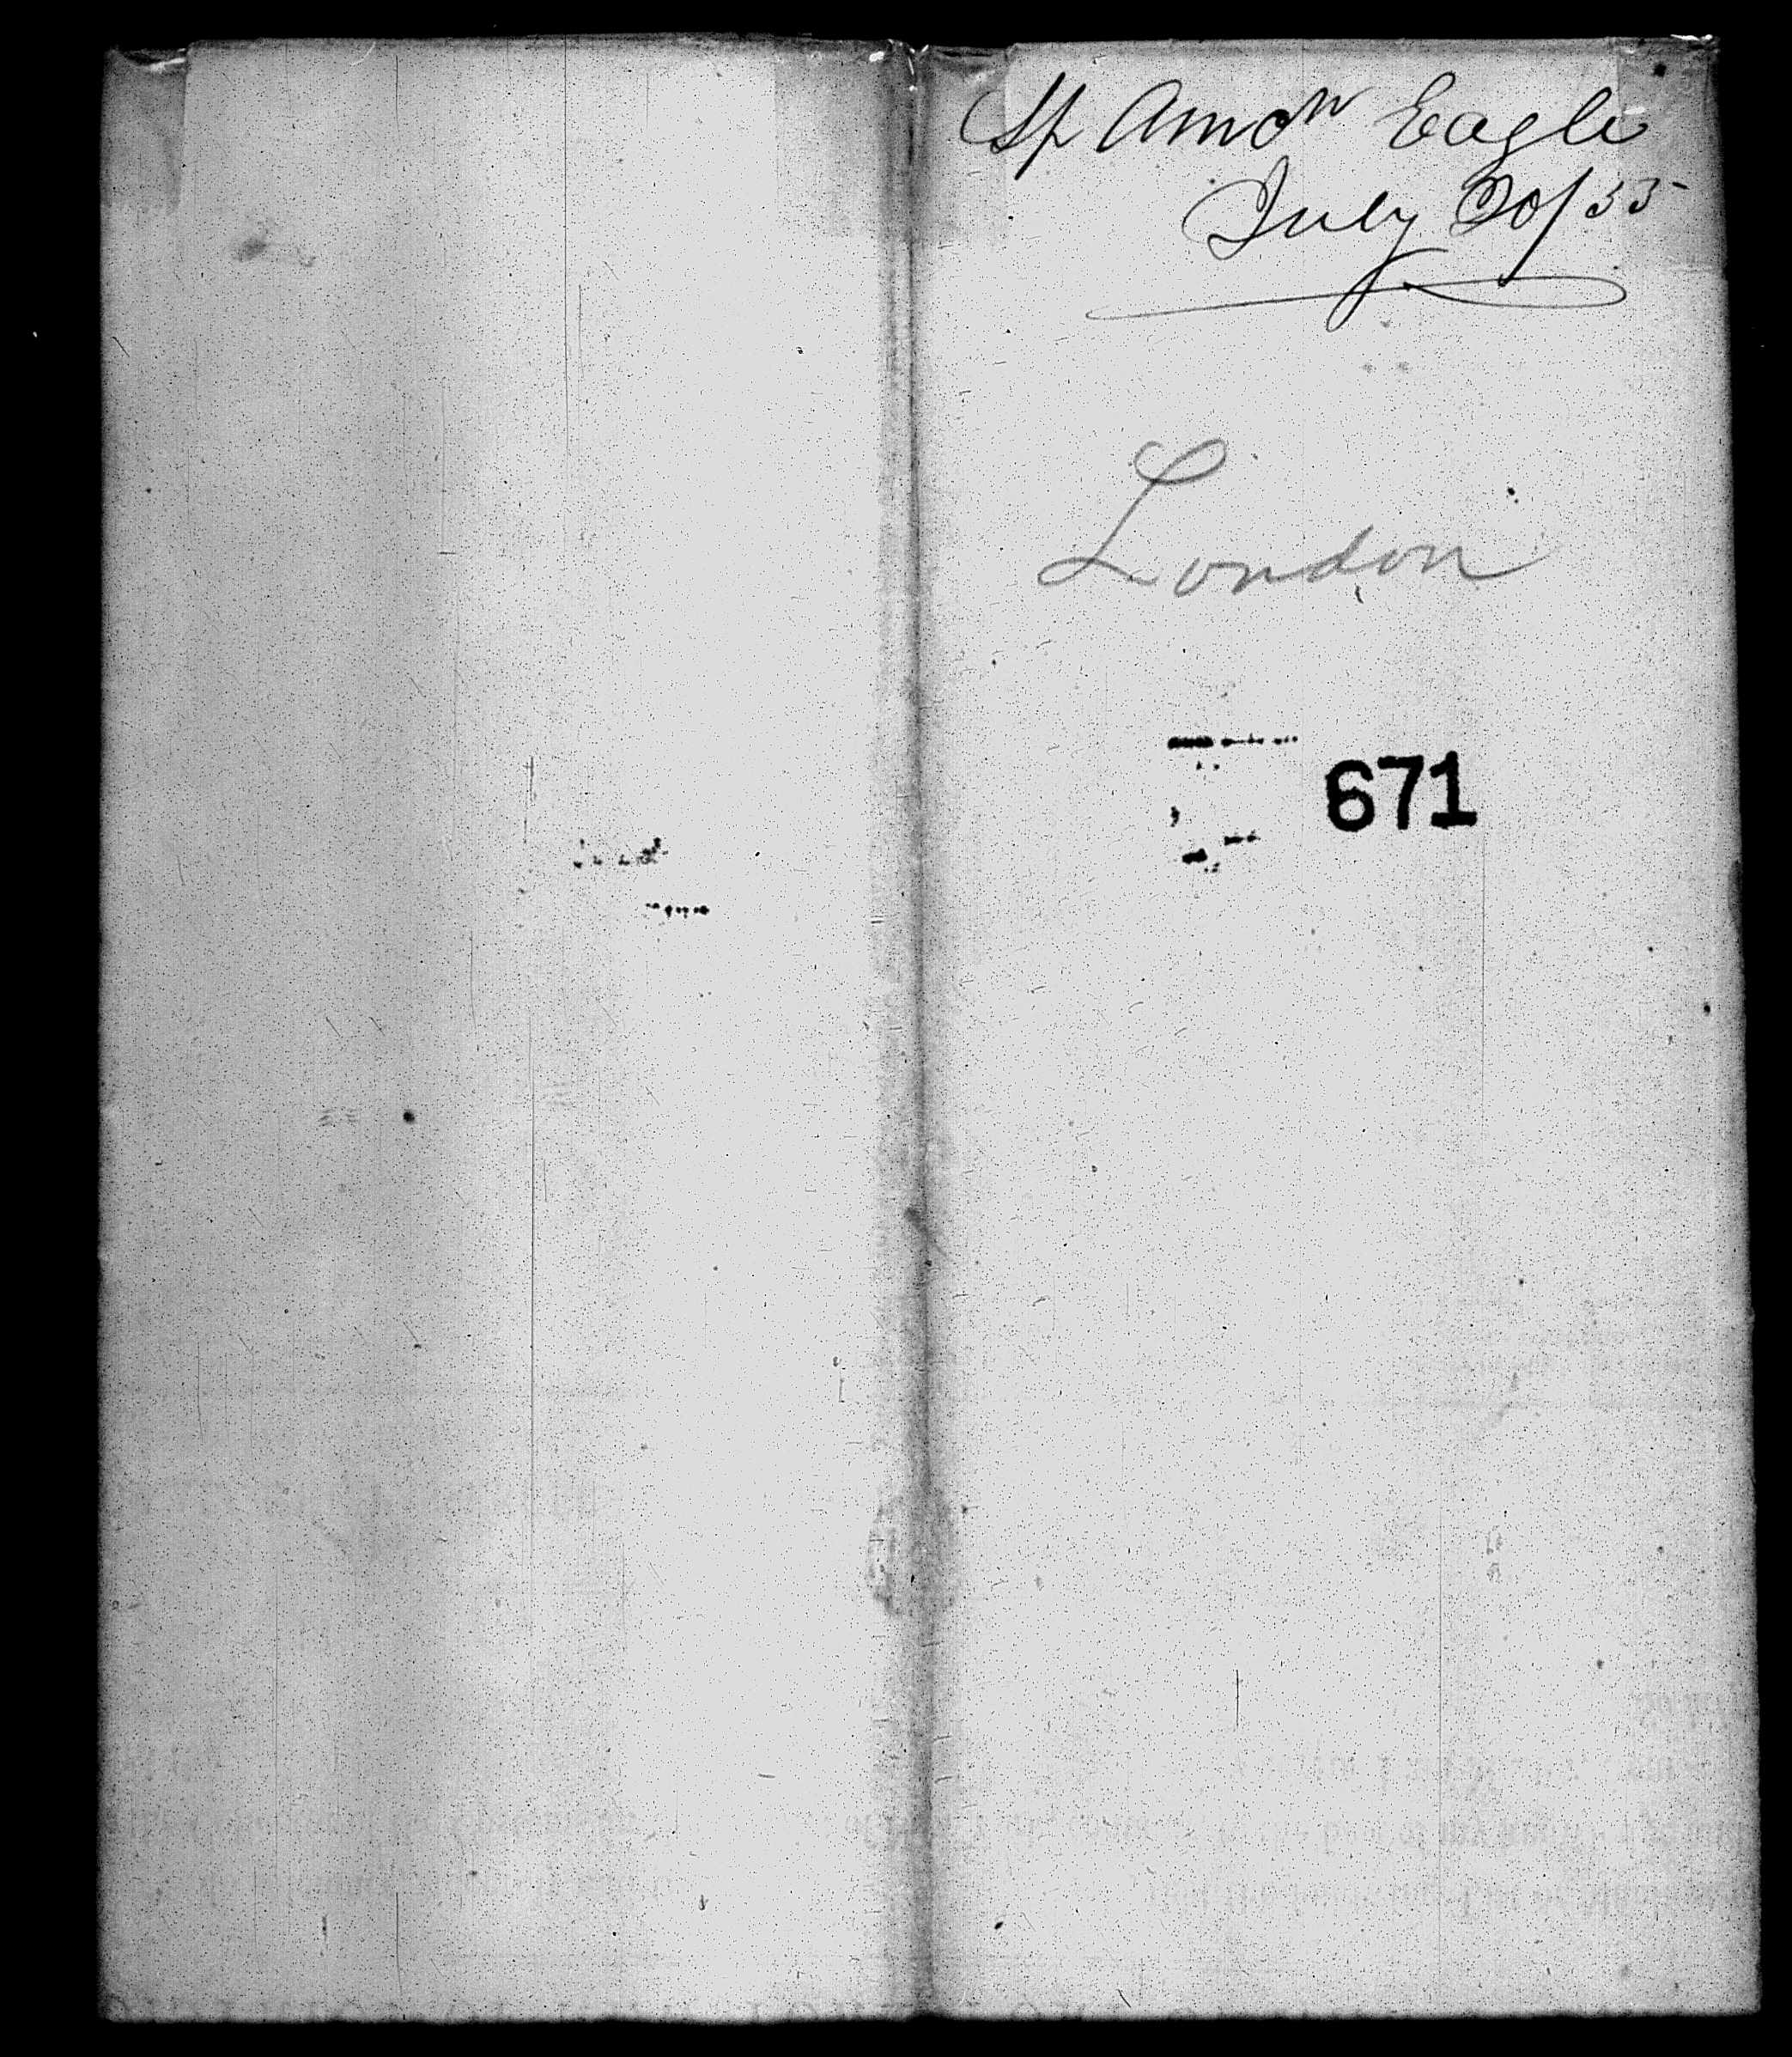 Sp Amcn Eagle
July 20/55
London
671